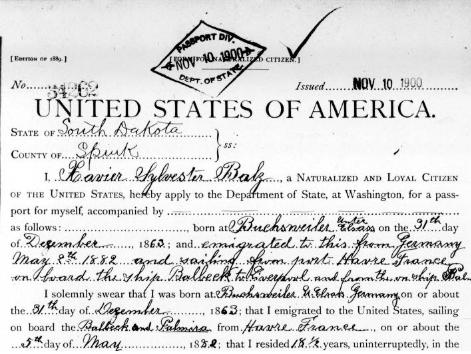 [EDITION OF 1889.]
[FORM FOR NATURALIZED CITIZEN.]
PASSPORT DIV.
NOV 10, 1900
DEPT. OF STATE
No. 34262 Issued NOV 10 1900
UNITED STATES OF AMERICA.
STATE OF South Dakota
COUNTY OF Spink ss:
I, Xavier Sylvester, a NATURALIZED AND LOYAL CITIZEN
OF THE UNITED STATES, hereby apply to the Department of State, at Washington, for a pass-
port for myself, accompanied by
as follows: born at Buchsweiler Unter Elsass on the 31th day
of December, 1863; and emigrated to this from Germany
May 5th 1882 and sailing from port Havre France
on board the ship Balbeck to Liverpool and from th on ship
I solemnly swear that I was born at Buchsweiler U. Elsass Germany on or about
the 31th day of December, 1863; that I emigrated to the United States, sailing
on board the Balbeck and Palmira from Havre France, on or about the
5th day of May 1882; that I resided 18½ years, uninterruptedly, in the